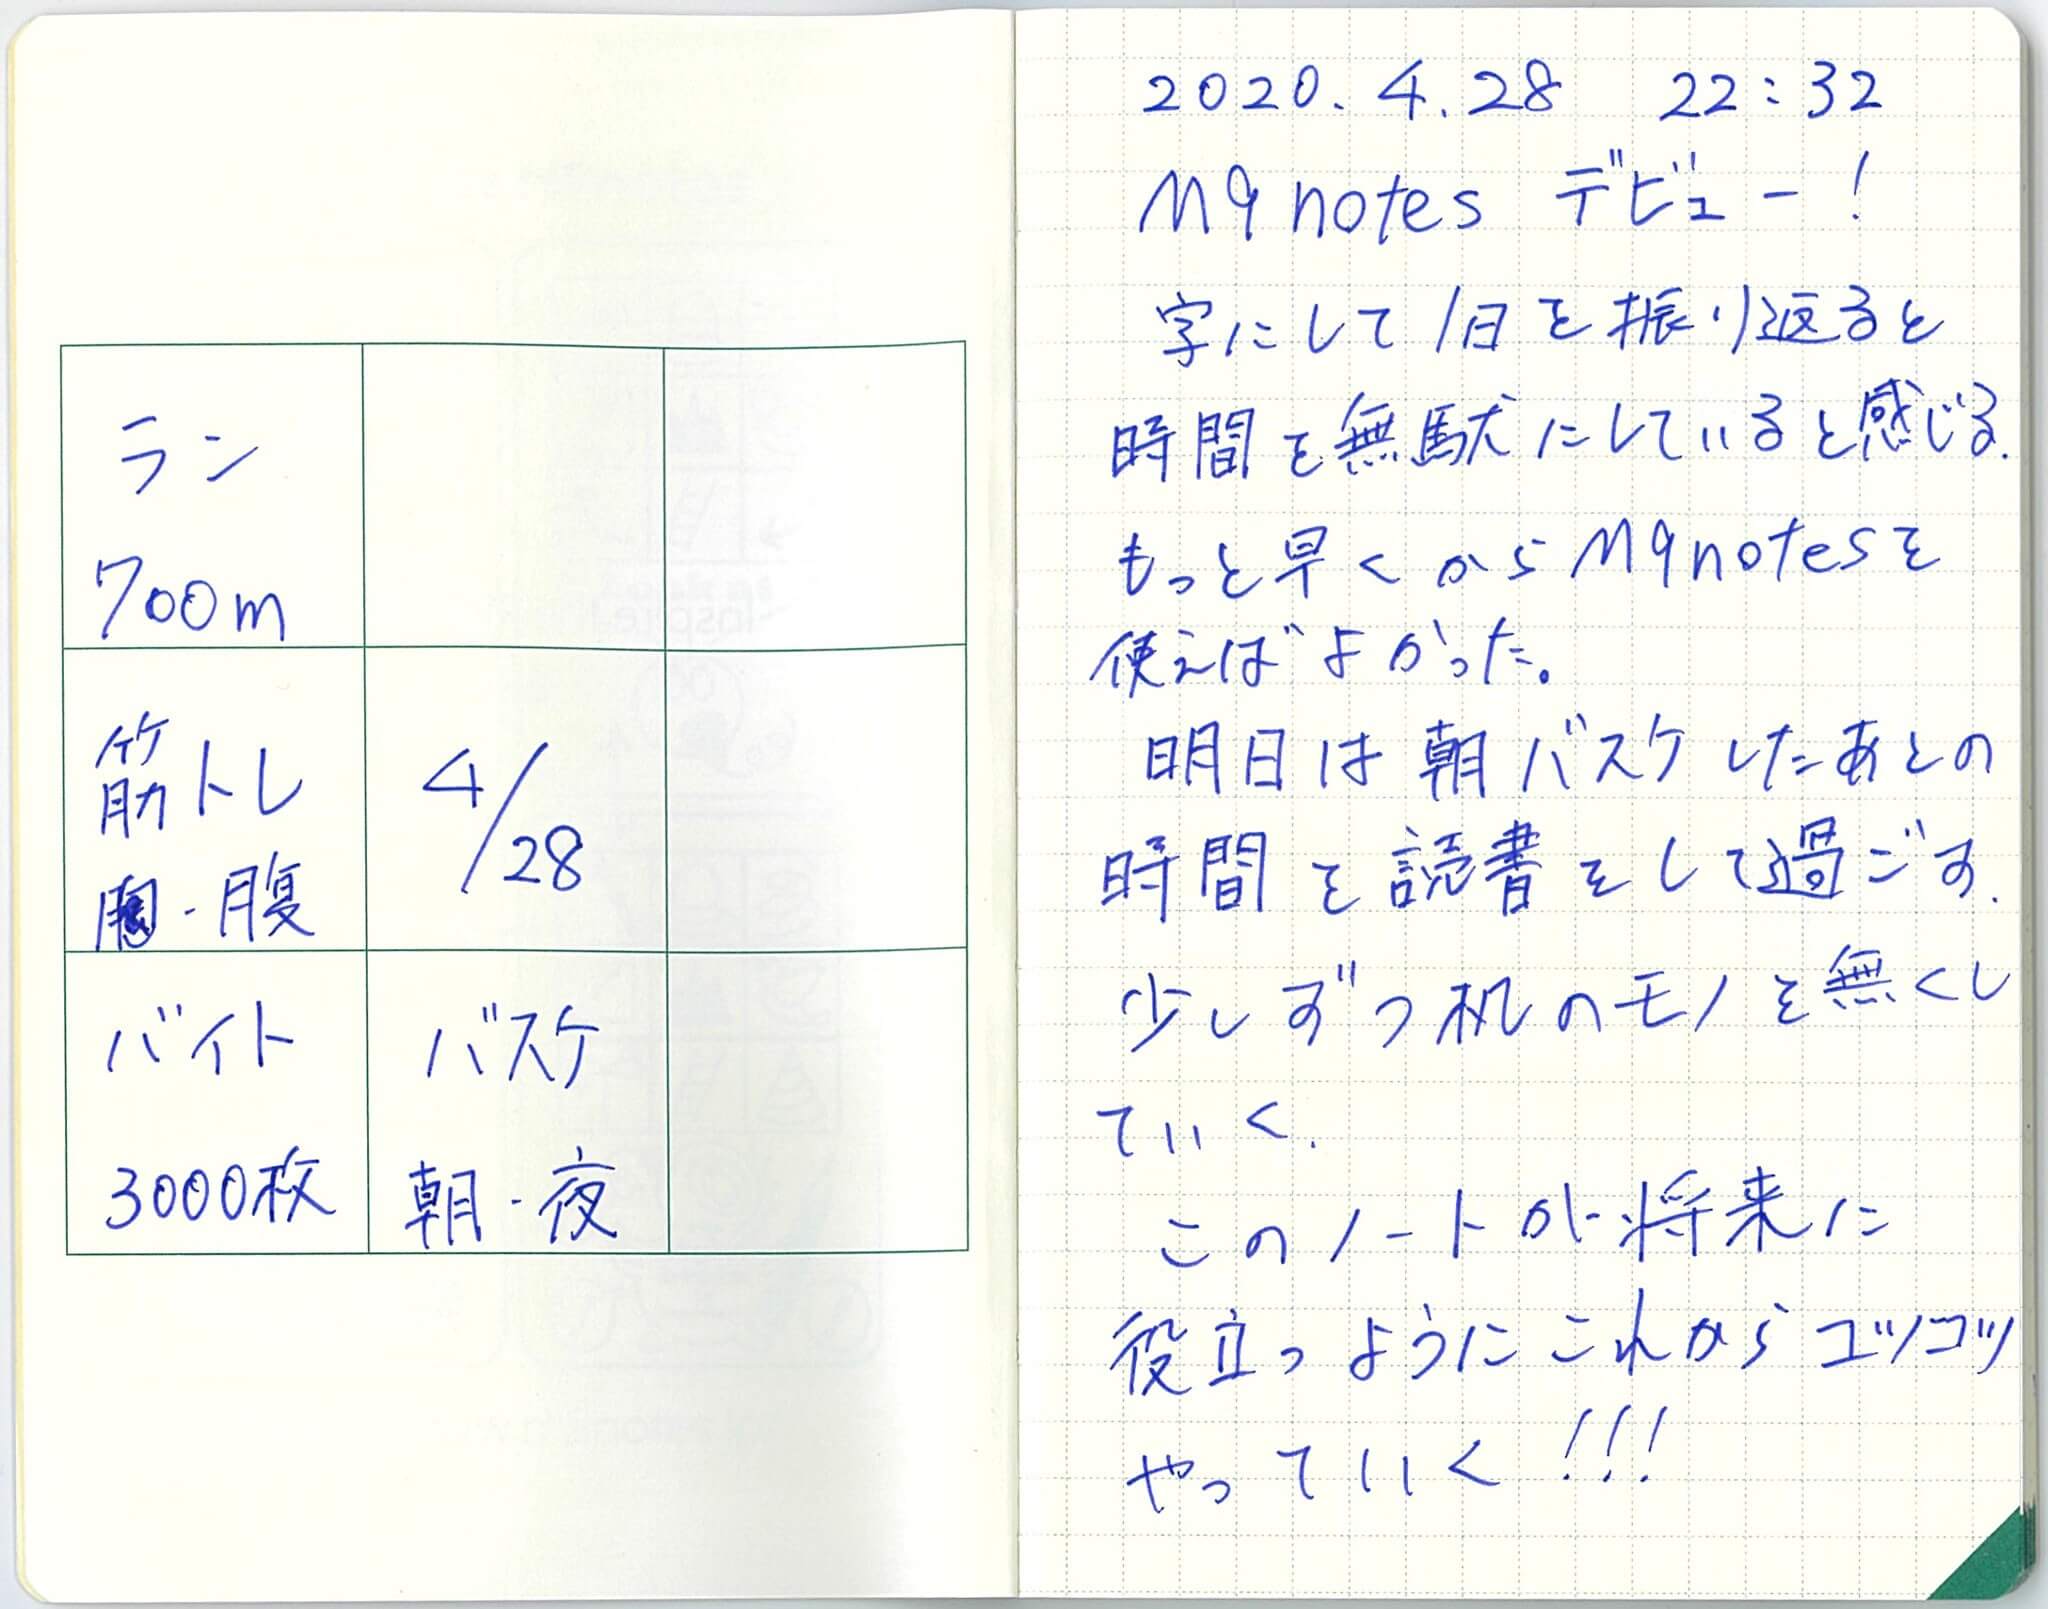 ラン
700m
筋トレ
胸・腹
4/28
バイト
3000枚
バスケ
朝・夜
2020.4.28 22:32
M9notes デビュー!
字にして1日を振り返ると
時間を無駄にしていると感じる.
もっと早くからM9notesを
使えばよかった。
明日は朝バスケしたあとの
時間を読書をして過ごす.
少しずつ机のモノを無くし
ていく.
このノートが将来に
役立つようにこれからコツコツ
やっていく!!!